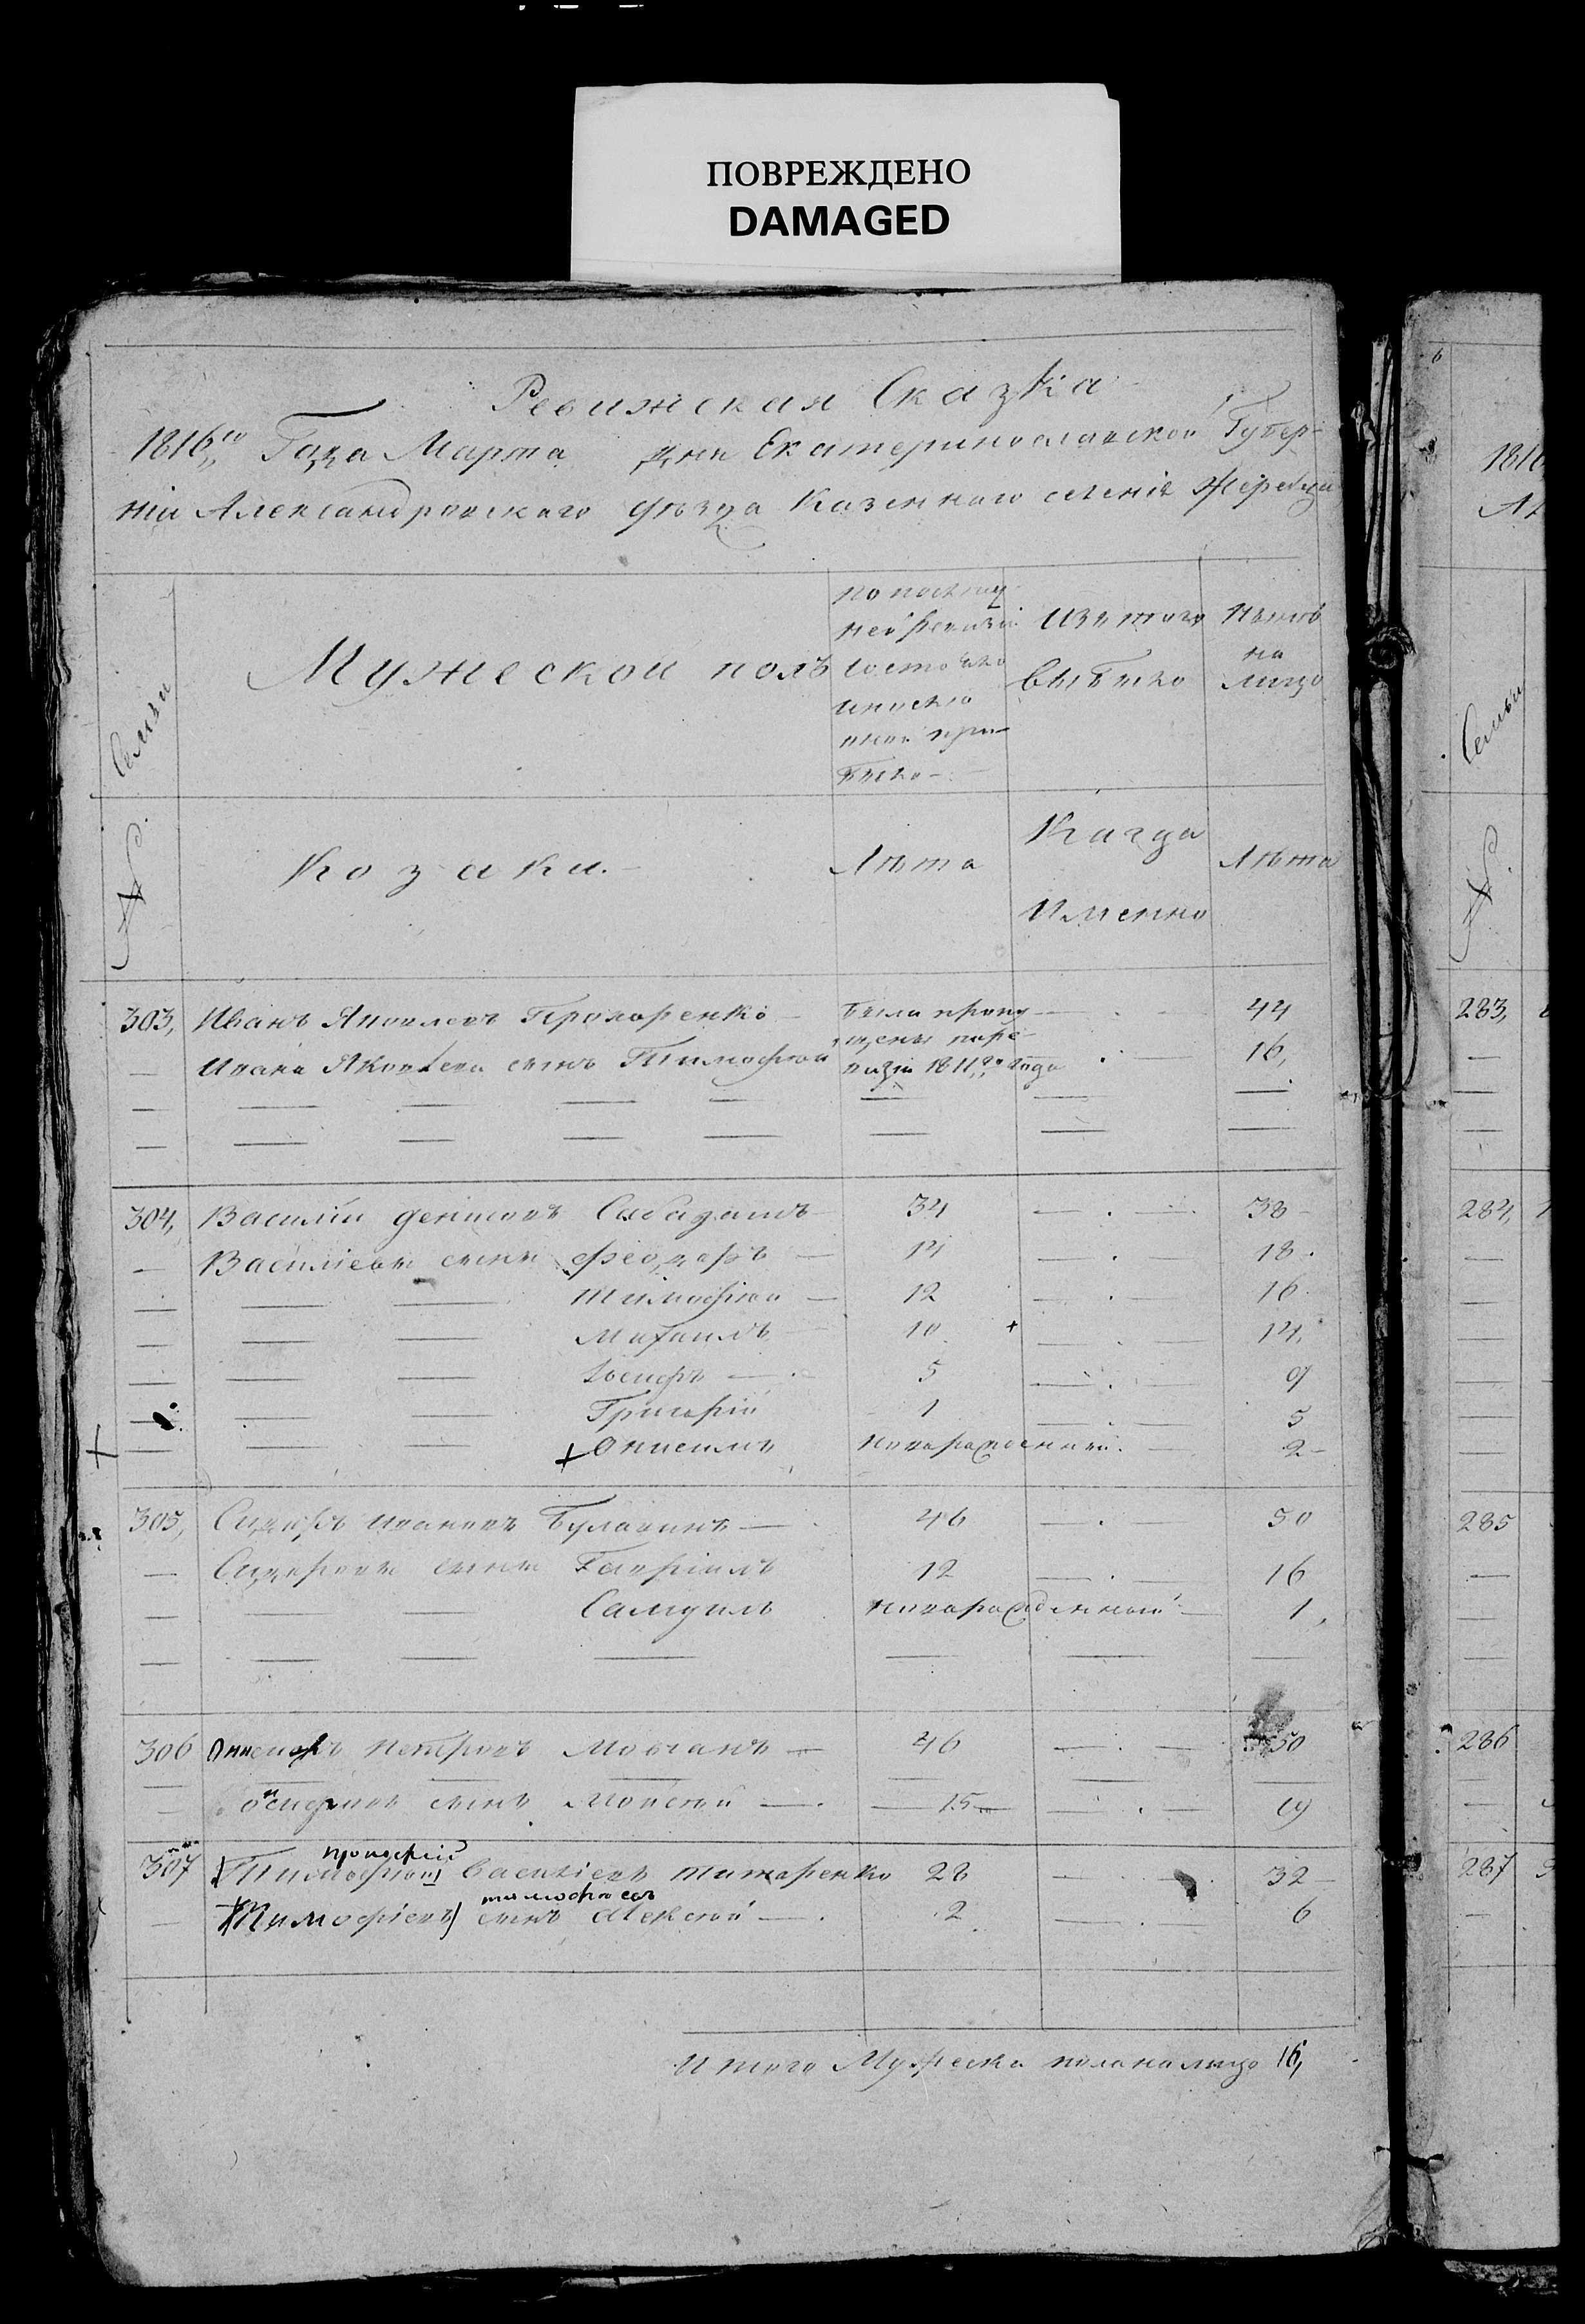 ПОВРЕЖДЕНО
DAMAGED
Ревижская Сказка
1816го Года Марта дня Екатеринославской Губер-
ніи Александровского уѣзда Казенного селенія Жеребца
Семьи
Мужеской полъ
по послѣд
ней ревизіи
состояло
и после
оной при-
было
Изъ того
выбыло
Нынѣ
на
лицо
№
Козаки.
Лѣта
Когда
Именно
Лѣта
303, Иванъ Яковлевъ Прохоренко были пропу 44
щены по ре-
Ивана Яковлева сынъ Тимофѣй визіи 1811го года 16,
304, Василій Денисовъ 34 38
Васильевы сыны Феодоръ 14 18.
Тимофѣй 12 16.
Михаилъ 10 14.
Іосифъ 5 9
Григорій 1 5
Онисимъ новорожденный. 2
305, Сидоръ Ивановъ Булавинъ 46 50
Сидоровы сыны Гавріилъ 12 16
Самуилъ новорожденный 1,
306 Петровъ Мовчанъ 46 50
сынъ Моисей 15 19
Прокофій
307 Тимофѣй Васильевъ Титаренко 28 32
тимофѣевъ
Тимофіевъ сынъ Алексѣй 2 6
Итого Мужеска пола на лицо 16,
1816
Семьи
№
283,
284,
285
286
287